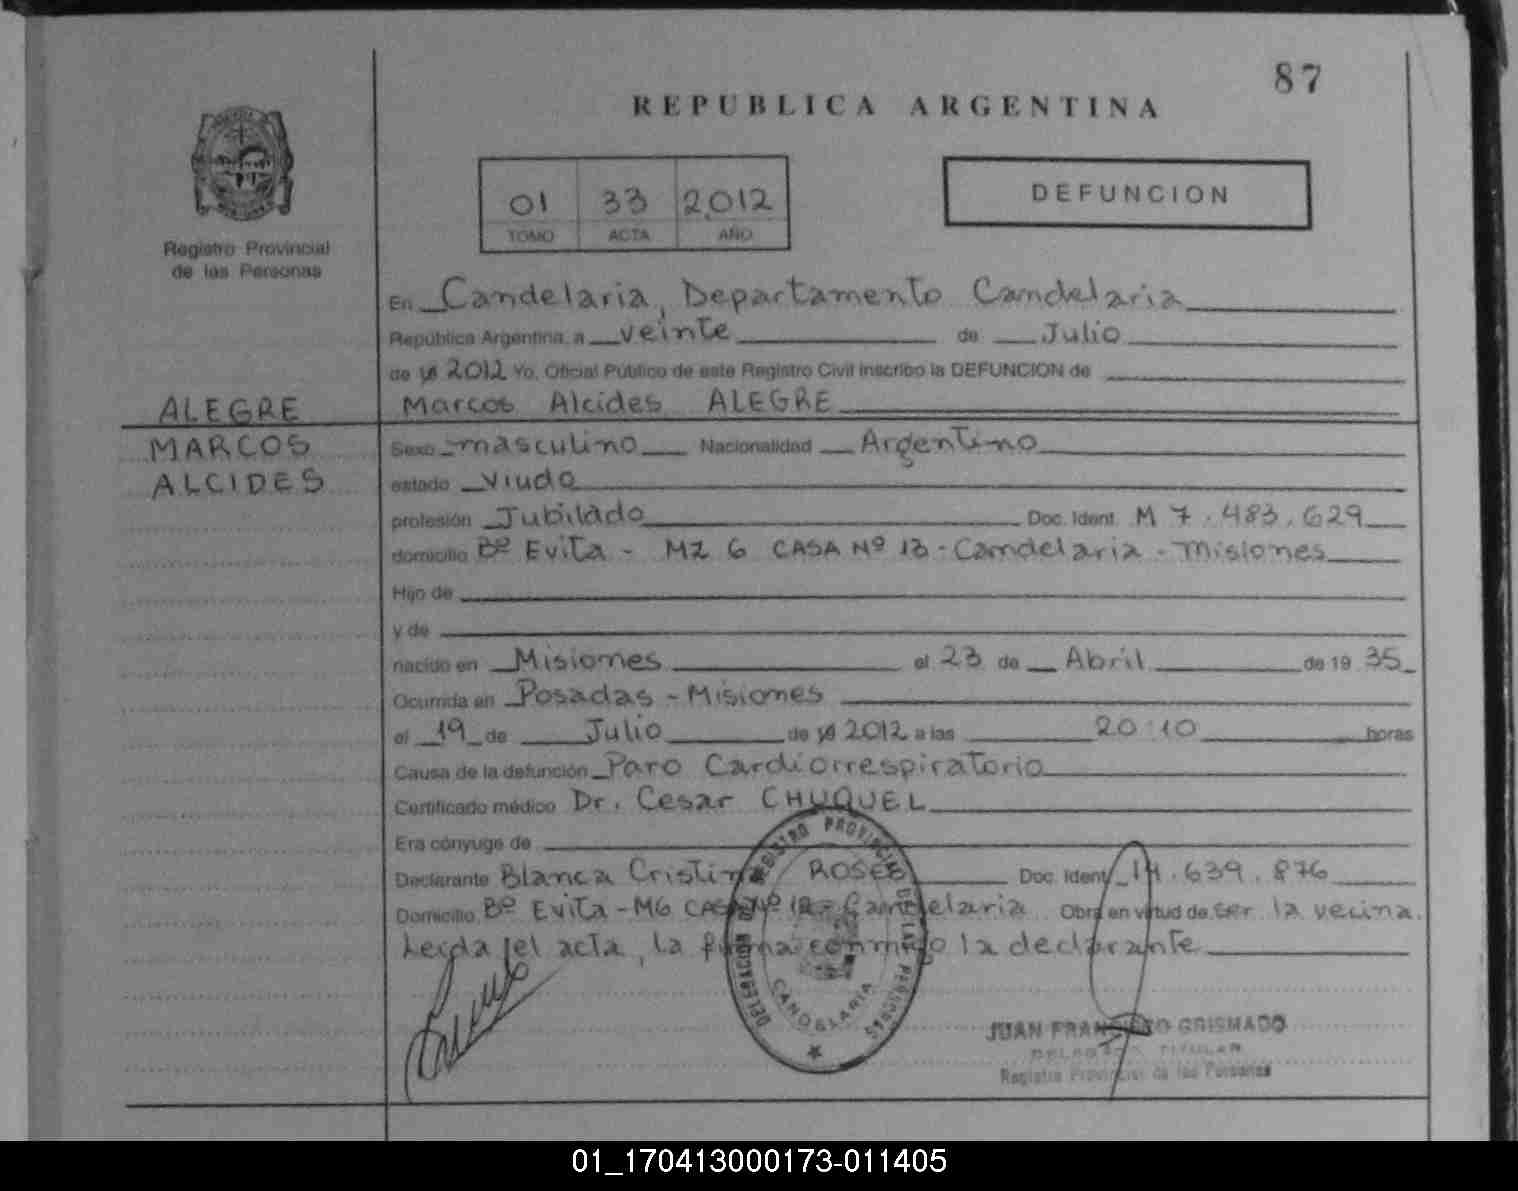 87
REPUBLICA ARGENTINA
01 33 2012
TOMO ACTA AÑO
DEFUNCION
Registro Provincial
de las Personas
En Candelaria, Departamento Candelaria
República Argentina, a veinte de Julio
de 19 2012 Yo, Oficial Público de este Registro Civil inscribo la DEFUNCION de
ALEGRE
MARCOS
ALCIDES
Marcos Alcides ALEGRE
Sexo masculino Nacionalidad Argentino
estado Viudo
profesión Jubilado Doc. Ident. M 7.483.629
domicilio Bº Evita - MZ 6 CASA Nº 13 - Candelaria - Misiones
Hijo de
y de
nacido en Misiones el 23 de Abril de 19 35
Ocurrida en Posadas - Misiones
el 19 de Julio de 19 2012 a las 20:10 horas
Causa de la defunción Paro Cardiorrespiratorio
Certificado médico Dr. Cesar CHUQUEL
Era cónyuge de
Declarante Blanca Cristina Doc. Ident. 14.639.876
Domicilio Bº Evita - M6 CASA Nº Candelaria Obra en virtud de ser la vecina.
Leida el acta, la firma conmigo la declarante
DELEGACION DE REGISTRO PROVINCIAL DE LAS PERSONAS
CANDELARIA
JUAN FRANCISCO GRISMADO
DELEGADO TITULAR
Registro Provincial de las Personas
01_170413000173-011405